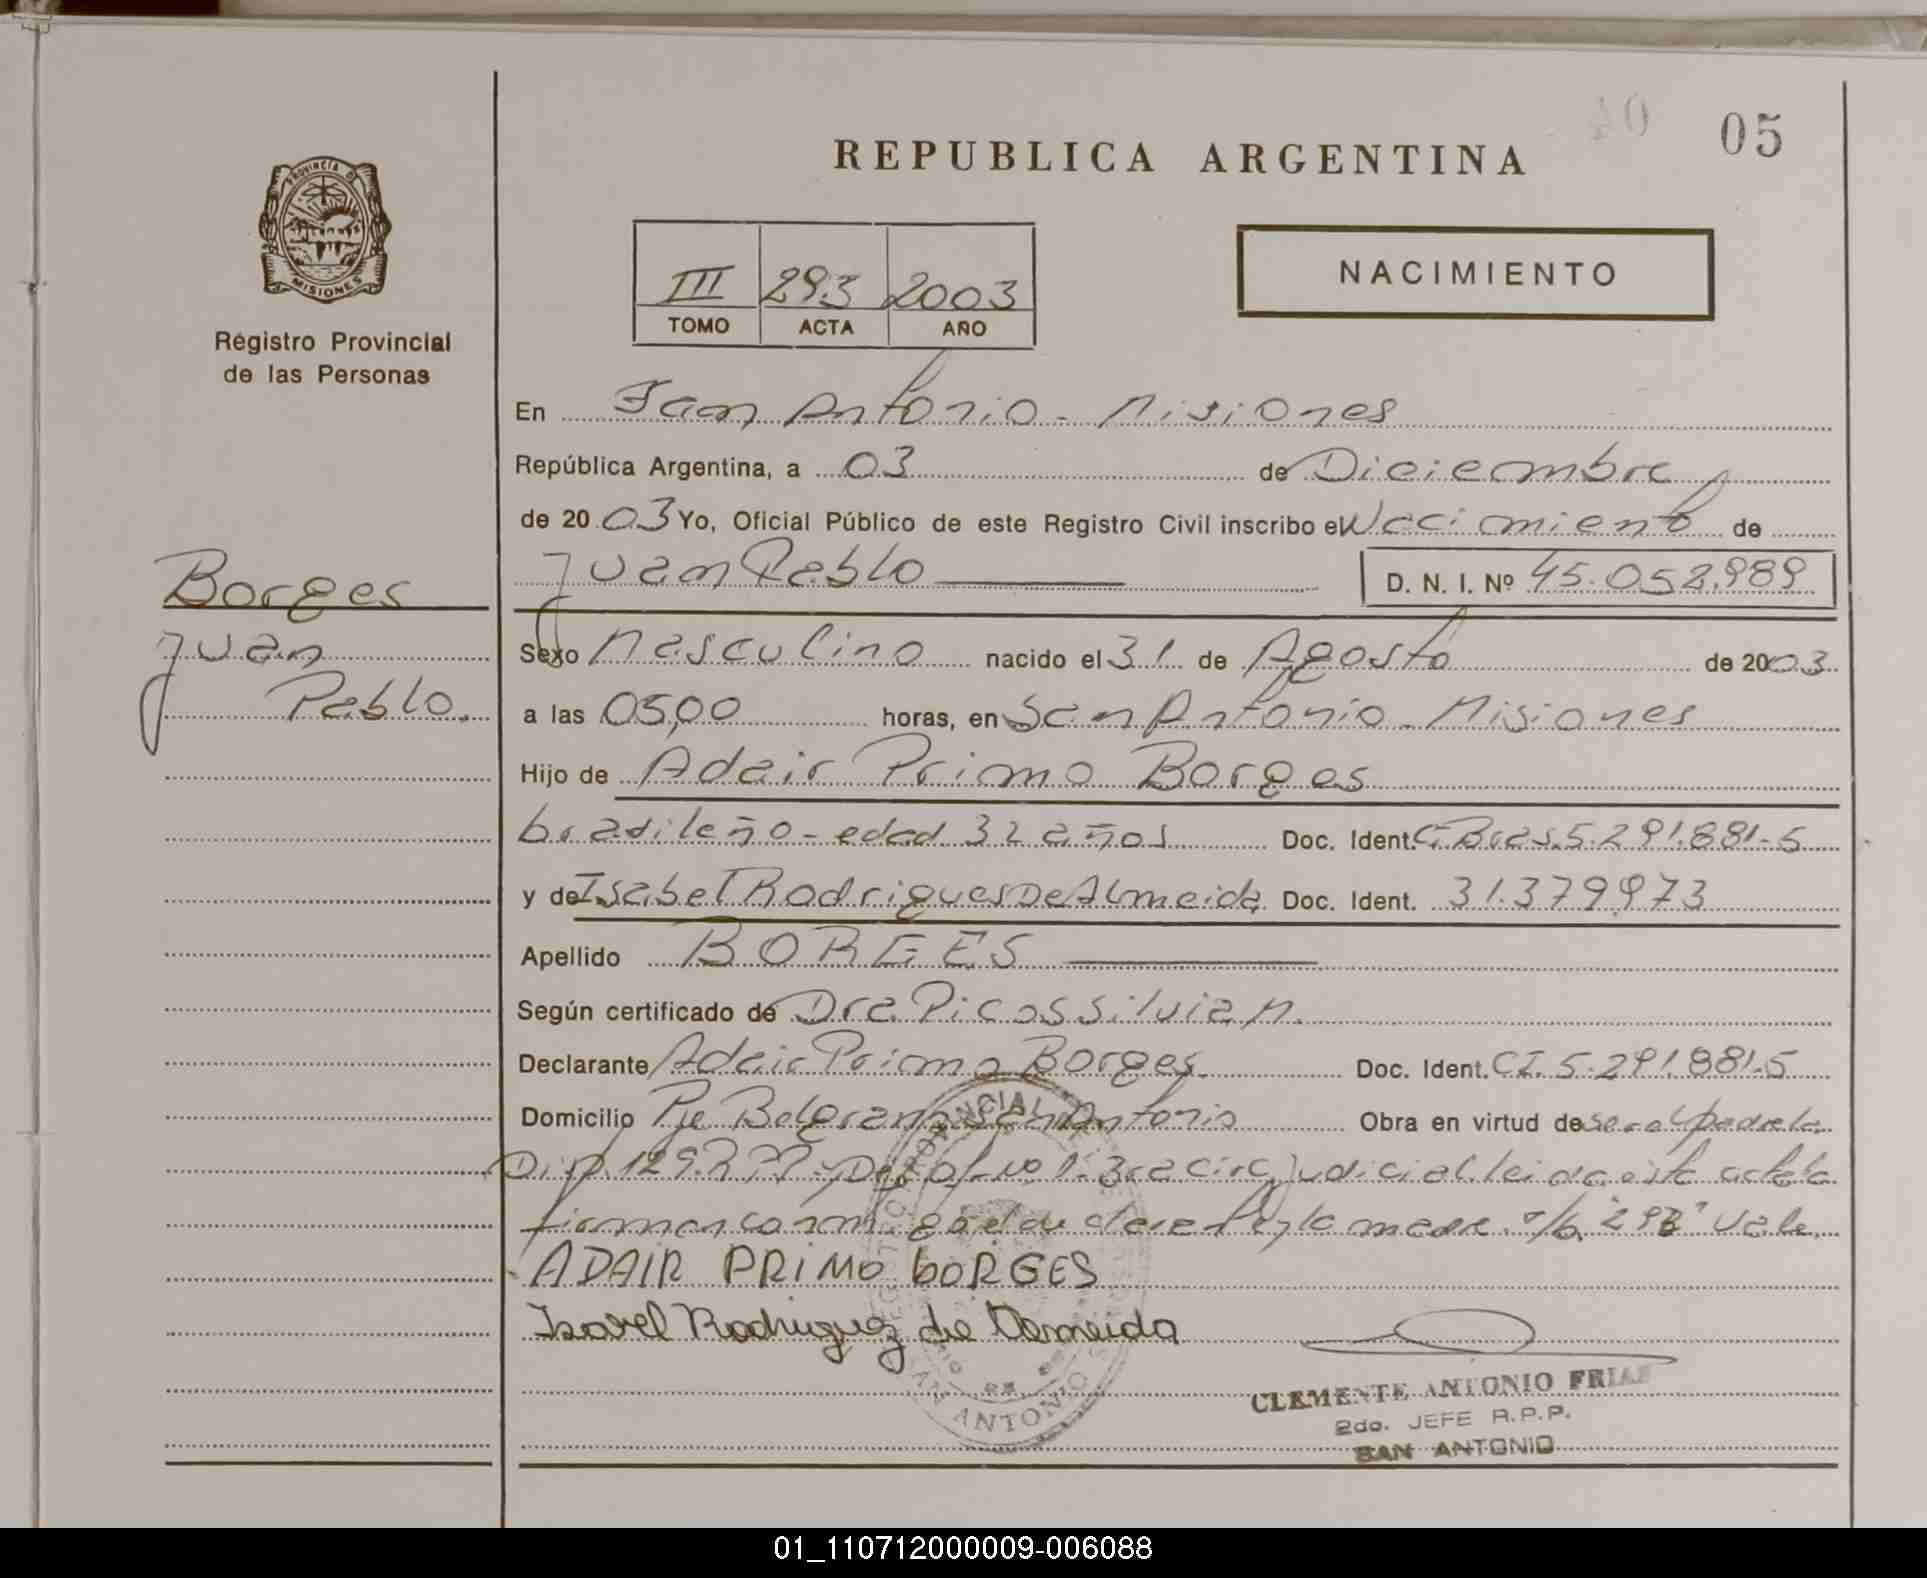 05
REPUBLICA ARGENTINA
PROVINCIA DE
MISIONES
Registro Provincial
de las Personas
NACIMIENTO
III 293 2003
TOMO ACTA AÑO
En San Antonio - Misiones
República Argentina, a 03 de Diciembre
de 2003 Yo, Oficial Público de este Registro Civil inscribo el Nacimiento de
Juan Pablo D. N. I. Nº 45.052.989
Borges
Juan
Pablo.
Sexo Masculino nacido el 31 de Agosto de 2003
a las 05,00 horas, en San Antonio - Misiones
Hijo de Adair Primo Borges
brasileño - edad 32 años Doc. Ident. CI Bras. 5.291.881-5
y de Isabel Rodrigues De Almeida Doc. Ident. 31.379.973
Apellido BORGES
Según certificado de Dra Picos Silvia M.
Declarante Adair Primo Borges Doc. Ident. CI. 5.291.881-5
Domicilio Pje Belgrano San Antonio Obra en virtud de ser el padre la
Disp. 129. Nº 1. 3ra circ judicial leida esta acta la
firman conmigo el declarante y la madre. "293" vale.
ADAIR PRIMO BORGES
Isavel Rodriguez de Almeida
CLEMENTE ANTONIO FRIAS
2do. JEFE R.P.P.
SAN ANTONIO
01_110712000009-006088